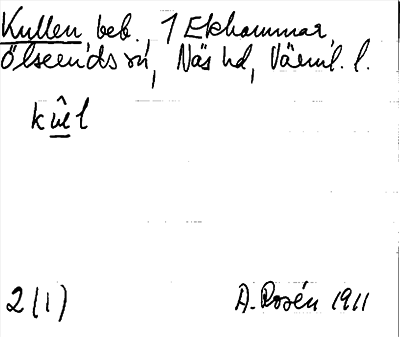 Kullen beb., 1 Ekhammar,
Ölseruds sn, Näs hd, Värml. l.
2(1)
A. Rosén 1911